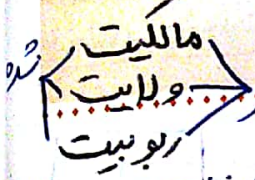 مالکیت
ولایت
ربوبیت